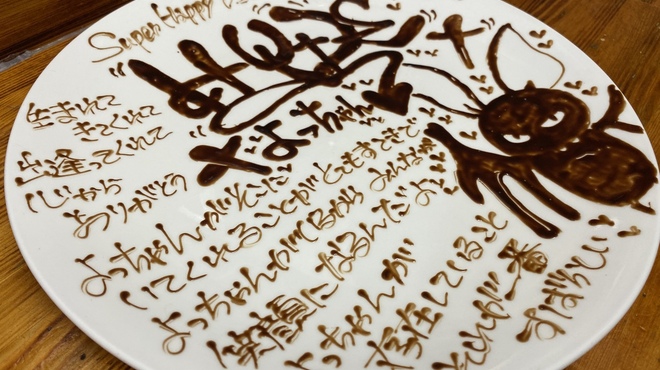 Super Happy
おめでとう
よっちゃん
生まれて
きてくれて
出逢ってくれて
心から
ありがとう
よっちゃんがそこに
いてくれることがとてもすてきで
よっちゃんがいるからみんなが
笑顔になるんだよ
よっちゃんが
存在していること
それが一番
すばらしい